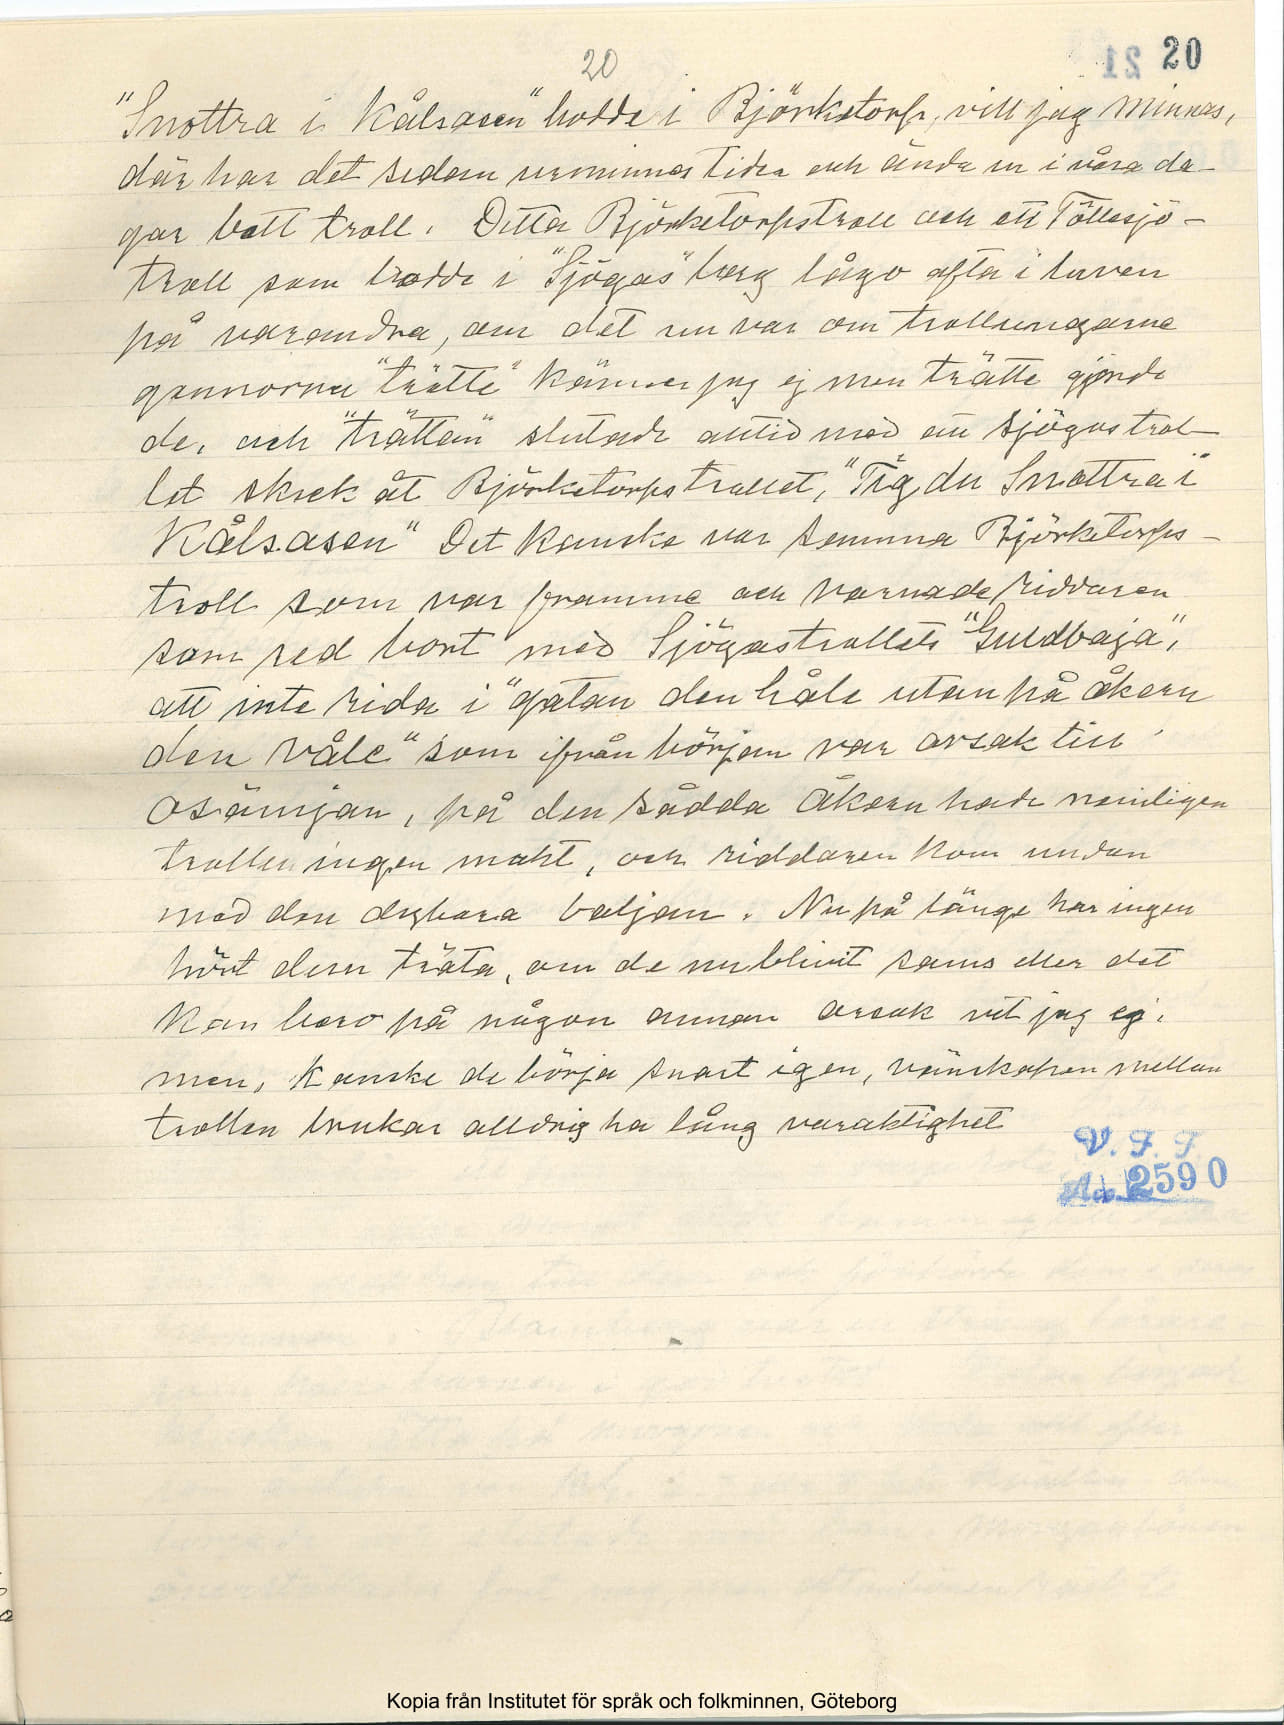 20
20
"Snottra i Kålsasen" bodde i Björketorp, vill jag minnas,
där har det sedan urminnes tider och ända in i våra da-
gar bott troll. Detta Björketorpstroll och ett Töllesjö-
troll som bodde i "Sjögas" berg lågo ofta i luven
på varandra, om det nu var om trollungarne
gummorna "trätte" känner jag ej men trätte gjorde
de, och "trättan" slutade alltid med att Sjögastrol-
let skrek åt Björketorpstrollet, "Tig du Snottra i
Kålsasen" Det kanske var samma Björketorps-
troll som var framme och varnade riddaren
som red bort med Sjögastrollets "Guldbaja",
att inte rida i "gatan den håle utan på åkern
den våle" som ifrån början var orsak till
osämjan, på den sådda åkern hade nämligen
trollen ingen makt, och riddaren kom undan
med den dyrbara baljan. Nu på länge har ingen
hört dem träta, om de nu blivit sams eller det
kan bero på någon annan orsak vet jag ej,
men, kanske de börja snart igen, vänskapen mellan
trollen brukar alldrig ha lång varaktighet
V. F. F.
2590
Kopia från Institutet för språk och folkminnen, Göteborg